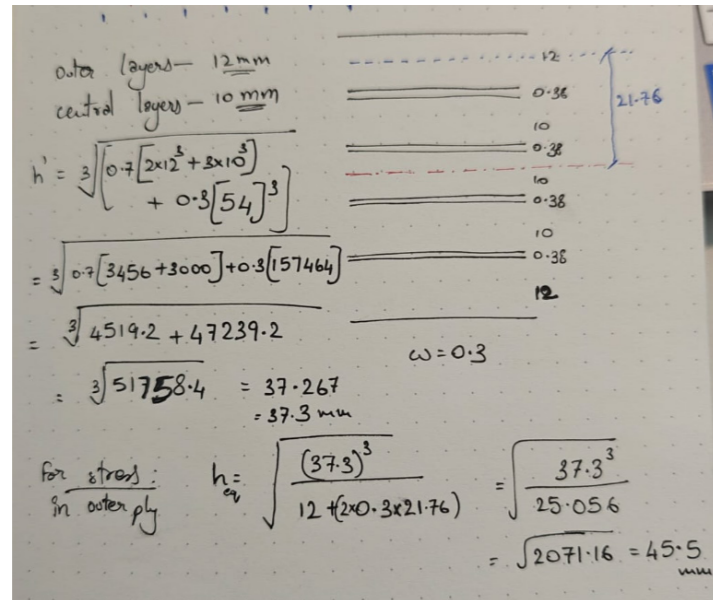 outer layers — 12 mm
central layers — 10 mm
h' = ∛[0.7[2×12³ + 3×10³]
+ 0.3[54]³]
= ∛0.7[3456+3000]+0.3[157464]
= ∛4519.2 + 47239.2
= ∛51758.4 = 37.267
= 37.3 mm
12
0.38
10
0.38
10
0.38
10
0.38
12
21.76
ω = 0.3
For stress :
in outer ply
h_eq = √(37.3)³ / 12 + (2×0.3×21.76) = √37.3³ / 25.056
= √2071.16 = 45.5 mm